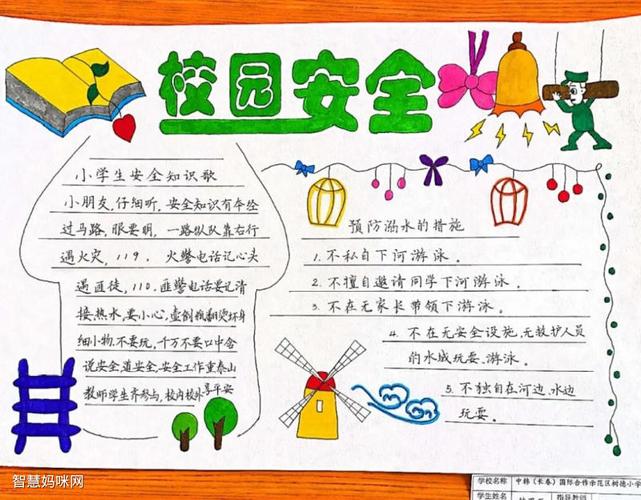 校园安全
小学生安全知识歌
小朋友,仔细听,安全知识有本经
过马路,眼要明,一路纵队靠右行
遇火灾,119,火警电话记心头
遇匪徒,110,匪警电话要记清
接热水,要小心,壶倒瓶翻烫坏身
细小物,不要玩,千万不要口中含
说安全,道安全,安全工作重泰山
教师学生齐参与,校内校外享平安
预防溺水的措施
1.不私自下河游泳。
2.不擅自邀请同学下河游泳。
3.不在无家长带领下游泳。
4.不在无安全设施,无救护人员
的水域玩耍、游泳。
5.不独自在河边、水边
玩耍。
智慧妈咪网
学校名称 中韩(长春)国际合作示范区树德小学
学生姓名
指导教师